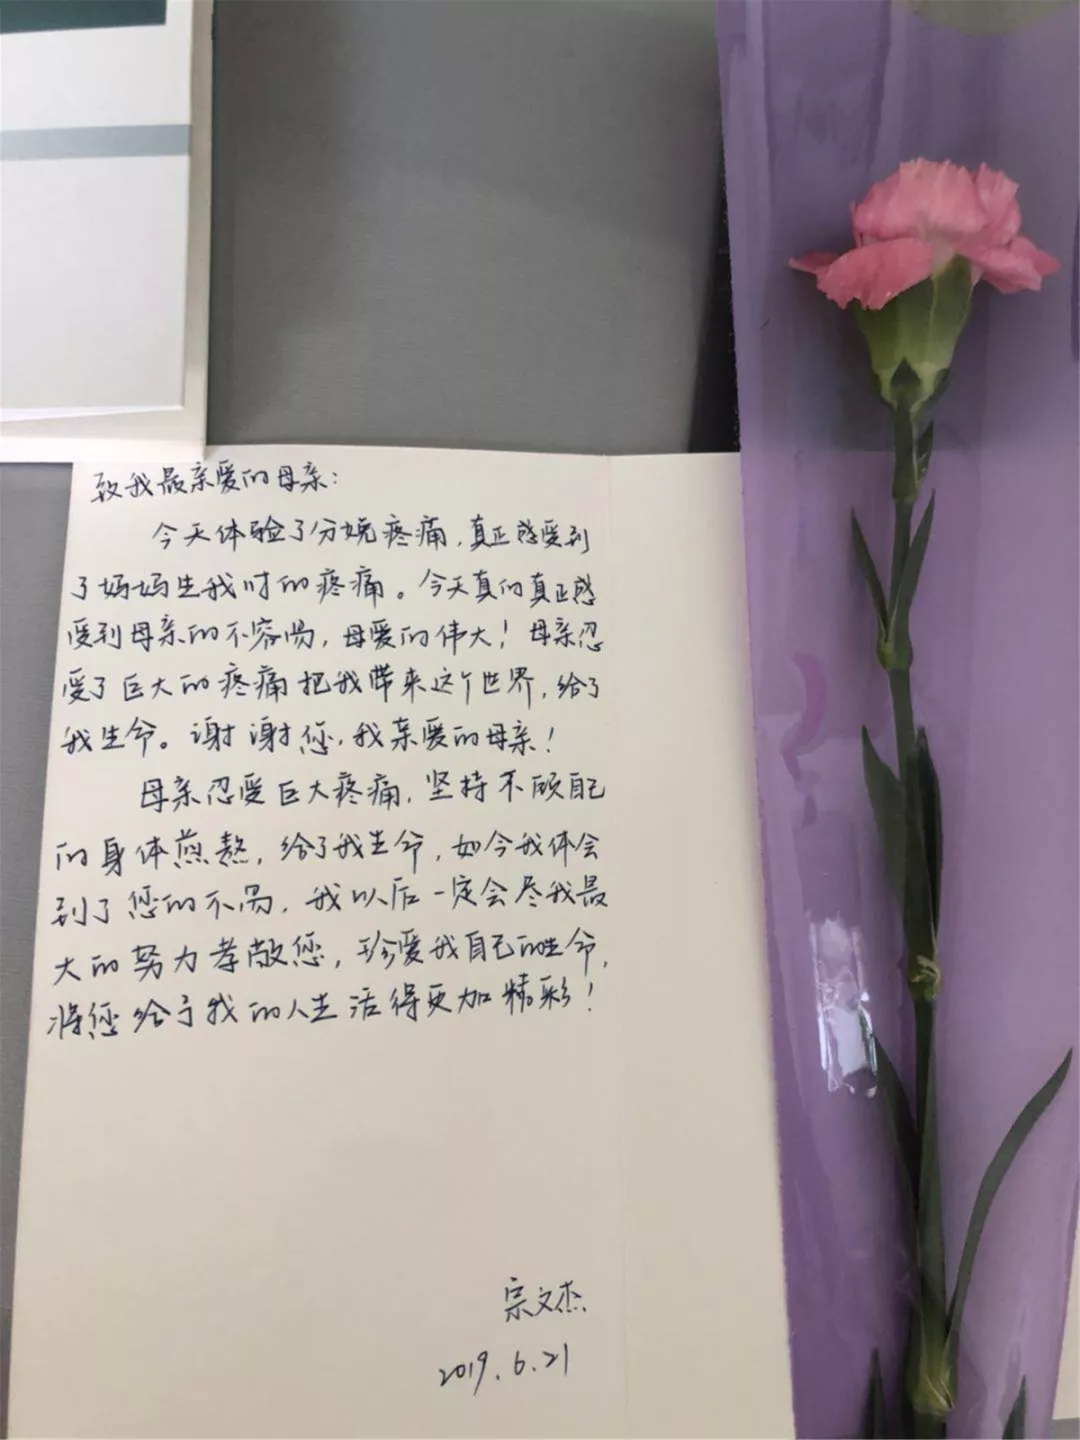 致我最亲爱的母亲：
今天体验了分娩疼痛，真正感受到
了妈妈生我时的疼痛。今天真的真正感
受到母亲的不容易，母爱的伟大！母亲忍
受了巨大的疼痛把我带来这个世界，给了
我生命。谢谢您，我亲爱的母亲！
母亲忍受巨大疼痛，坚持不顾自己
的身体煎熬，给了我生命，如今我体会
到了您的不易，我以后一定会尽我最
大的努力孝敬您，珍爱我自己的生命，
将您给予我的人生活得更加精彩！
宗文杰
2019.6.21